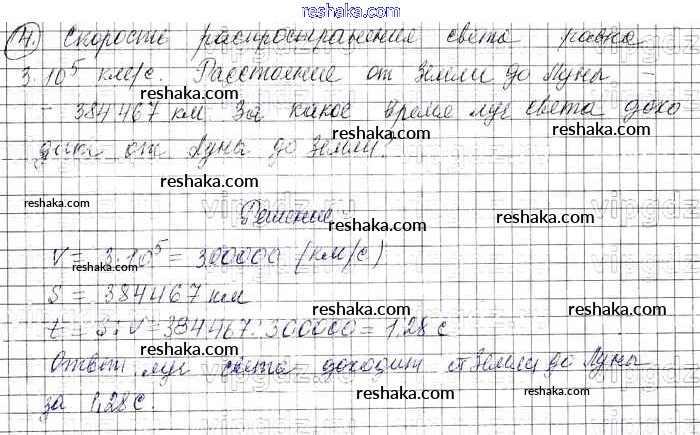 reshaka.com
4. Скорость распространения света равна
3·10⁵ км/с. Расстояние от Земли до Луны –
– 384467 км. За какое время луч света дохо
reshaka.com reshaka.com
дит от Луны до Земли?
reshaka.com
reshaka.com reshaka.com
Решение
V = 3·10⁵ = 300000 (км/с)
reshaka.com reshaka.com
S = 384467 км
reshaka.com
t = S : V = 384467 : 300000 = 1,28 с
reshaka.com reshaka.com
Ответ: луч света доходит от Земли до Луны
reshaka.com
за 1,28 с.
reshaka.com